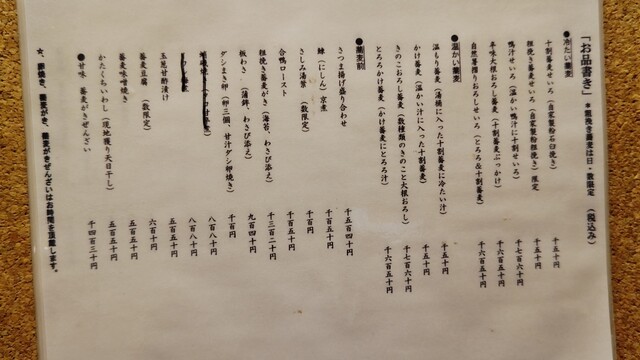 「お品書き」 ＊粗挽き蕎麦は日・数限定 （税込み）
●冷たい蕎麦
十割蕎麦せいろ（自家製粉石臼挽き） 千五十円
粗挽き蕎麦せいろ（自家製粉粗挽き）限定 千百五十円
鴨汁せいろ（温かい鴨汁に十割せいろ） 千七百六十円
辛味大根おろし蕎麦（十割蕎麦ぶっかけ） 千六百五十円
自然薯摺りおろしせいろ（とろろ＆十割蕎麦） 千六百五十円
●温かい蕎麦
温もり蕎麦（湯桶に入った十割蕎麦に冷たい汁） 千五十円
かけ蕎麦（温かい汁に入った十割蕎麦） 千五十円
きのこおろし蕎麦（数種類のきのこと大根おろし） 千七百六十円
とろろかけ蕎麦（かけ蕎麦にとろろ汁） 千六百五十円
●蕎麦前
さつま揚げ盛り合わせ 千五百四十円
鰊（にしん）京煮 千百五十円
さしみ湯葉（数限定） 千百円
合鴨ロースト 千百五十円
粗挽き蕎麦がき（海苔、わさび添え） 千三百二十円
板わさ（蒲鉾、わさび添え） 九百四十円
ダシまき卵（卵三個、甘汁ダシ卵焼き） 千百円
八百八十円
八百八十円
玉葱甘酢漬け 五百五十円
蕎麦豆腐（数限定） 六百十円
蕎麦味噌焼き 五百五十円
かたくちいわし（現地獲り天日干し） 五百五十円
●甘味 蕎麦がきぜんざい 千四百三十円
☆、卵焼き、蕎麦がき、蕎麦がきぜんざいはお時間を頂戴します。